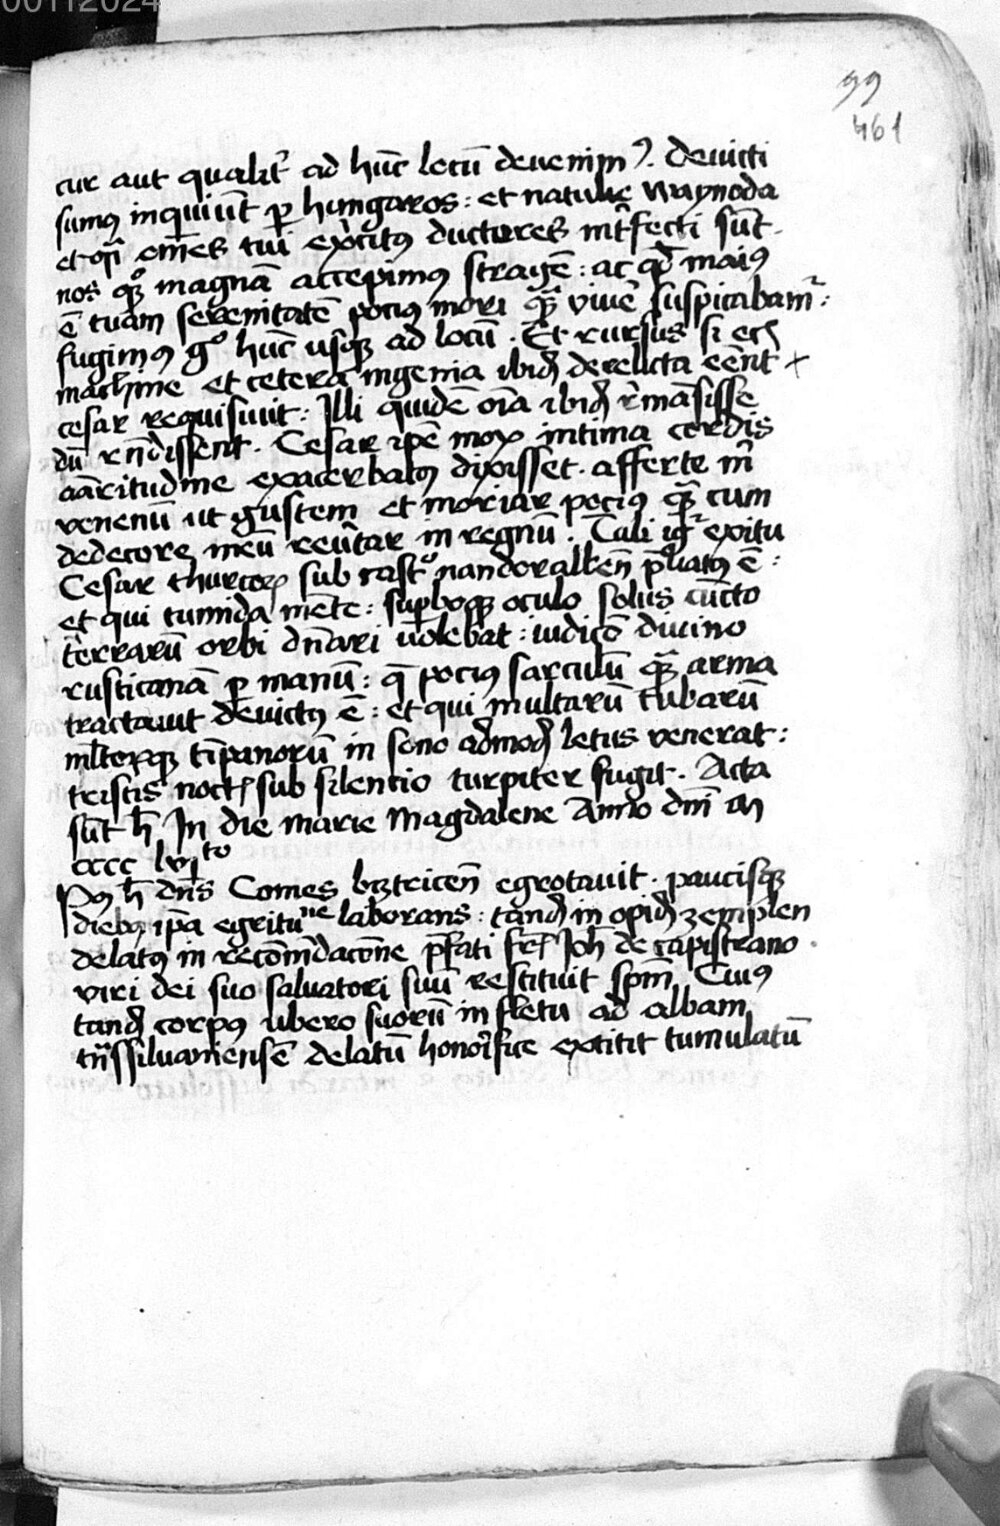 00112024
99
461
cur aut qualit̄ ad hūc locū deuenimꝰ. deuicti
sumꝰ inquiūt ꝑ hungaros : et natulie waynoda
et oēs tui exercitꝰ ductores int̄fecti sūt.
nos qͦꝫ magnā accepimꝰ stragē : ac qd̄ maiꝰ
ē tuam serenitatē pociꝰ mori qͣꝫ viuē suspicabamꝰ :
fugimꝰ gͦ hūc usqꝫ ad locū . Et rursus si eciā
machine et cetera ingenia ibid̄ derelicta eēnt
cesar requisiuit : Illi quidē oīa ibid̄ r̄māsisse
dū rn̄dissent . Cesar ip̄e mox intima cordis
aāritudine exacerbatꝰ dixisset . afferte m̄
venenū ut gustem et moriar pociꝰ qͣꝫ cum
dedecore meū reūtar in regnū . Tali igͬ exitu
Cesar thurcoꝝ sub castͦ nandoralben̄ p̄liatꝰ ē :
et qui tumida mēte : suꝑboqꝫ oculo solus cūcto
t̄rrarū orbi dn̄ari uolebat : iudicō diuino
rusticanā ꝑ manū : q̄ pociꝰ sarculū qͣꝫ arma
tractauit deuictꝰ ē : et qui multarū tubarū
ml̄torꝫqꝫ tīpanorū in sono admod̄ letus venerat :
tristis noctꝭ sub silencio turpiter fugit . Acta
sūt h̄ In die marie Magdalene Anno dn̄i M
cccc lvjto
Pꝰ h̄ dn̄s Comes bꝫtricen̄ egrotauit . paucisqꝫ
diebꝫ ip̄a egritu ne laborans : tand̄ in opid̄ zemplen
delatꝰ in recōm̄dacōne p̄fati fr̄is Joh̄ de capistrano .
viri dei suo saluatori suū restituit sp̄m . Cuiꝰ
tand̄ corpꝰ ubero suorū in fletu ad albam
tn̄ssiluaniensē delatū honorifice extitit tumulatū